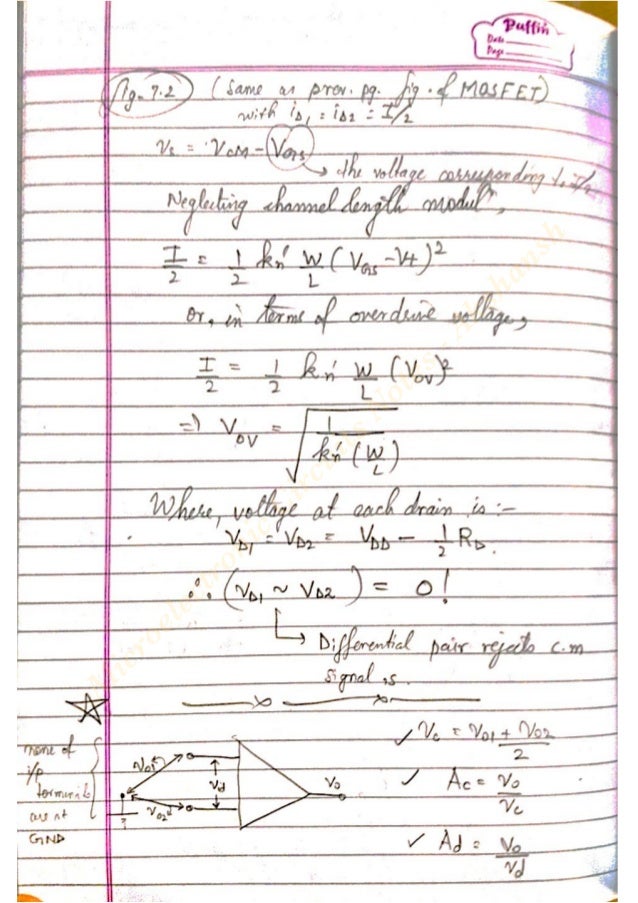 Puffin
Date
Page
fig. 7.2 (Same as prev. pg. fig. of MOSFET)
with iD1 = iD2 = I/2
Vs = VCM - VGS
→ the voltage corresponding to I/2
Neglecting channel length modulⁿ,
I/2 = 1/2 kn' W/L (VGS - Vt)²
or, in terms of overdrive voltage,
I/2 = 1/2 kn' W/L (VOV)²
=) VOV = √(I/kn'(W/L))
Where, voltage at each drain is :-
VD1 = VD2 = VDD - 1/2 RD.
∴ (VD1 ~ VD2) = 0!
→ Differential pair rejects c.m
signal
none of
i/p
terminals
are at
GND
Vd
Vo
✓ Vc = V01 + V02 / 2
✓ Ac = Vo/Vc
✓ Ad = Vo/Vd